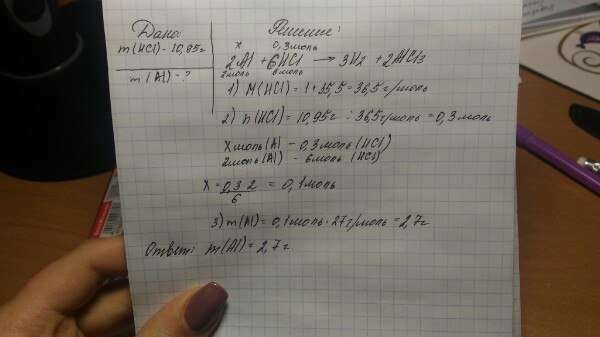 Дано:
m(HCl) - 10,95г
m(Al) - ?
Решение:
x 0,3моль
2Al + 6HCl → 3H2 + 2AlCl3
2моль 6моль
1) M(HCl) = 1+35,5 = 36,5г/моль
2) n(HCl) = 10,95г : 36,5г/моль = 0,3моль
Xмоль(Al - 0,3моль (HCl)
2моль(Al) - 6моль (HCl)
X = 0,3 2 / 6 = 0,1моль
3) m(Al) = 0,1моль · 27г/моль = 2,7г
Ответ: m(Al) = 2,7г